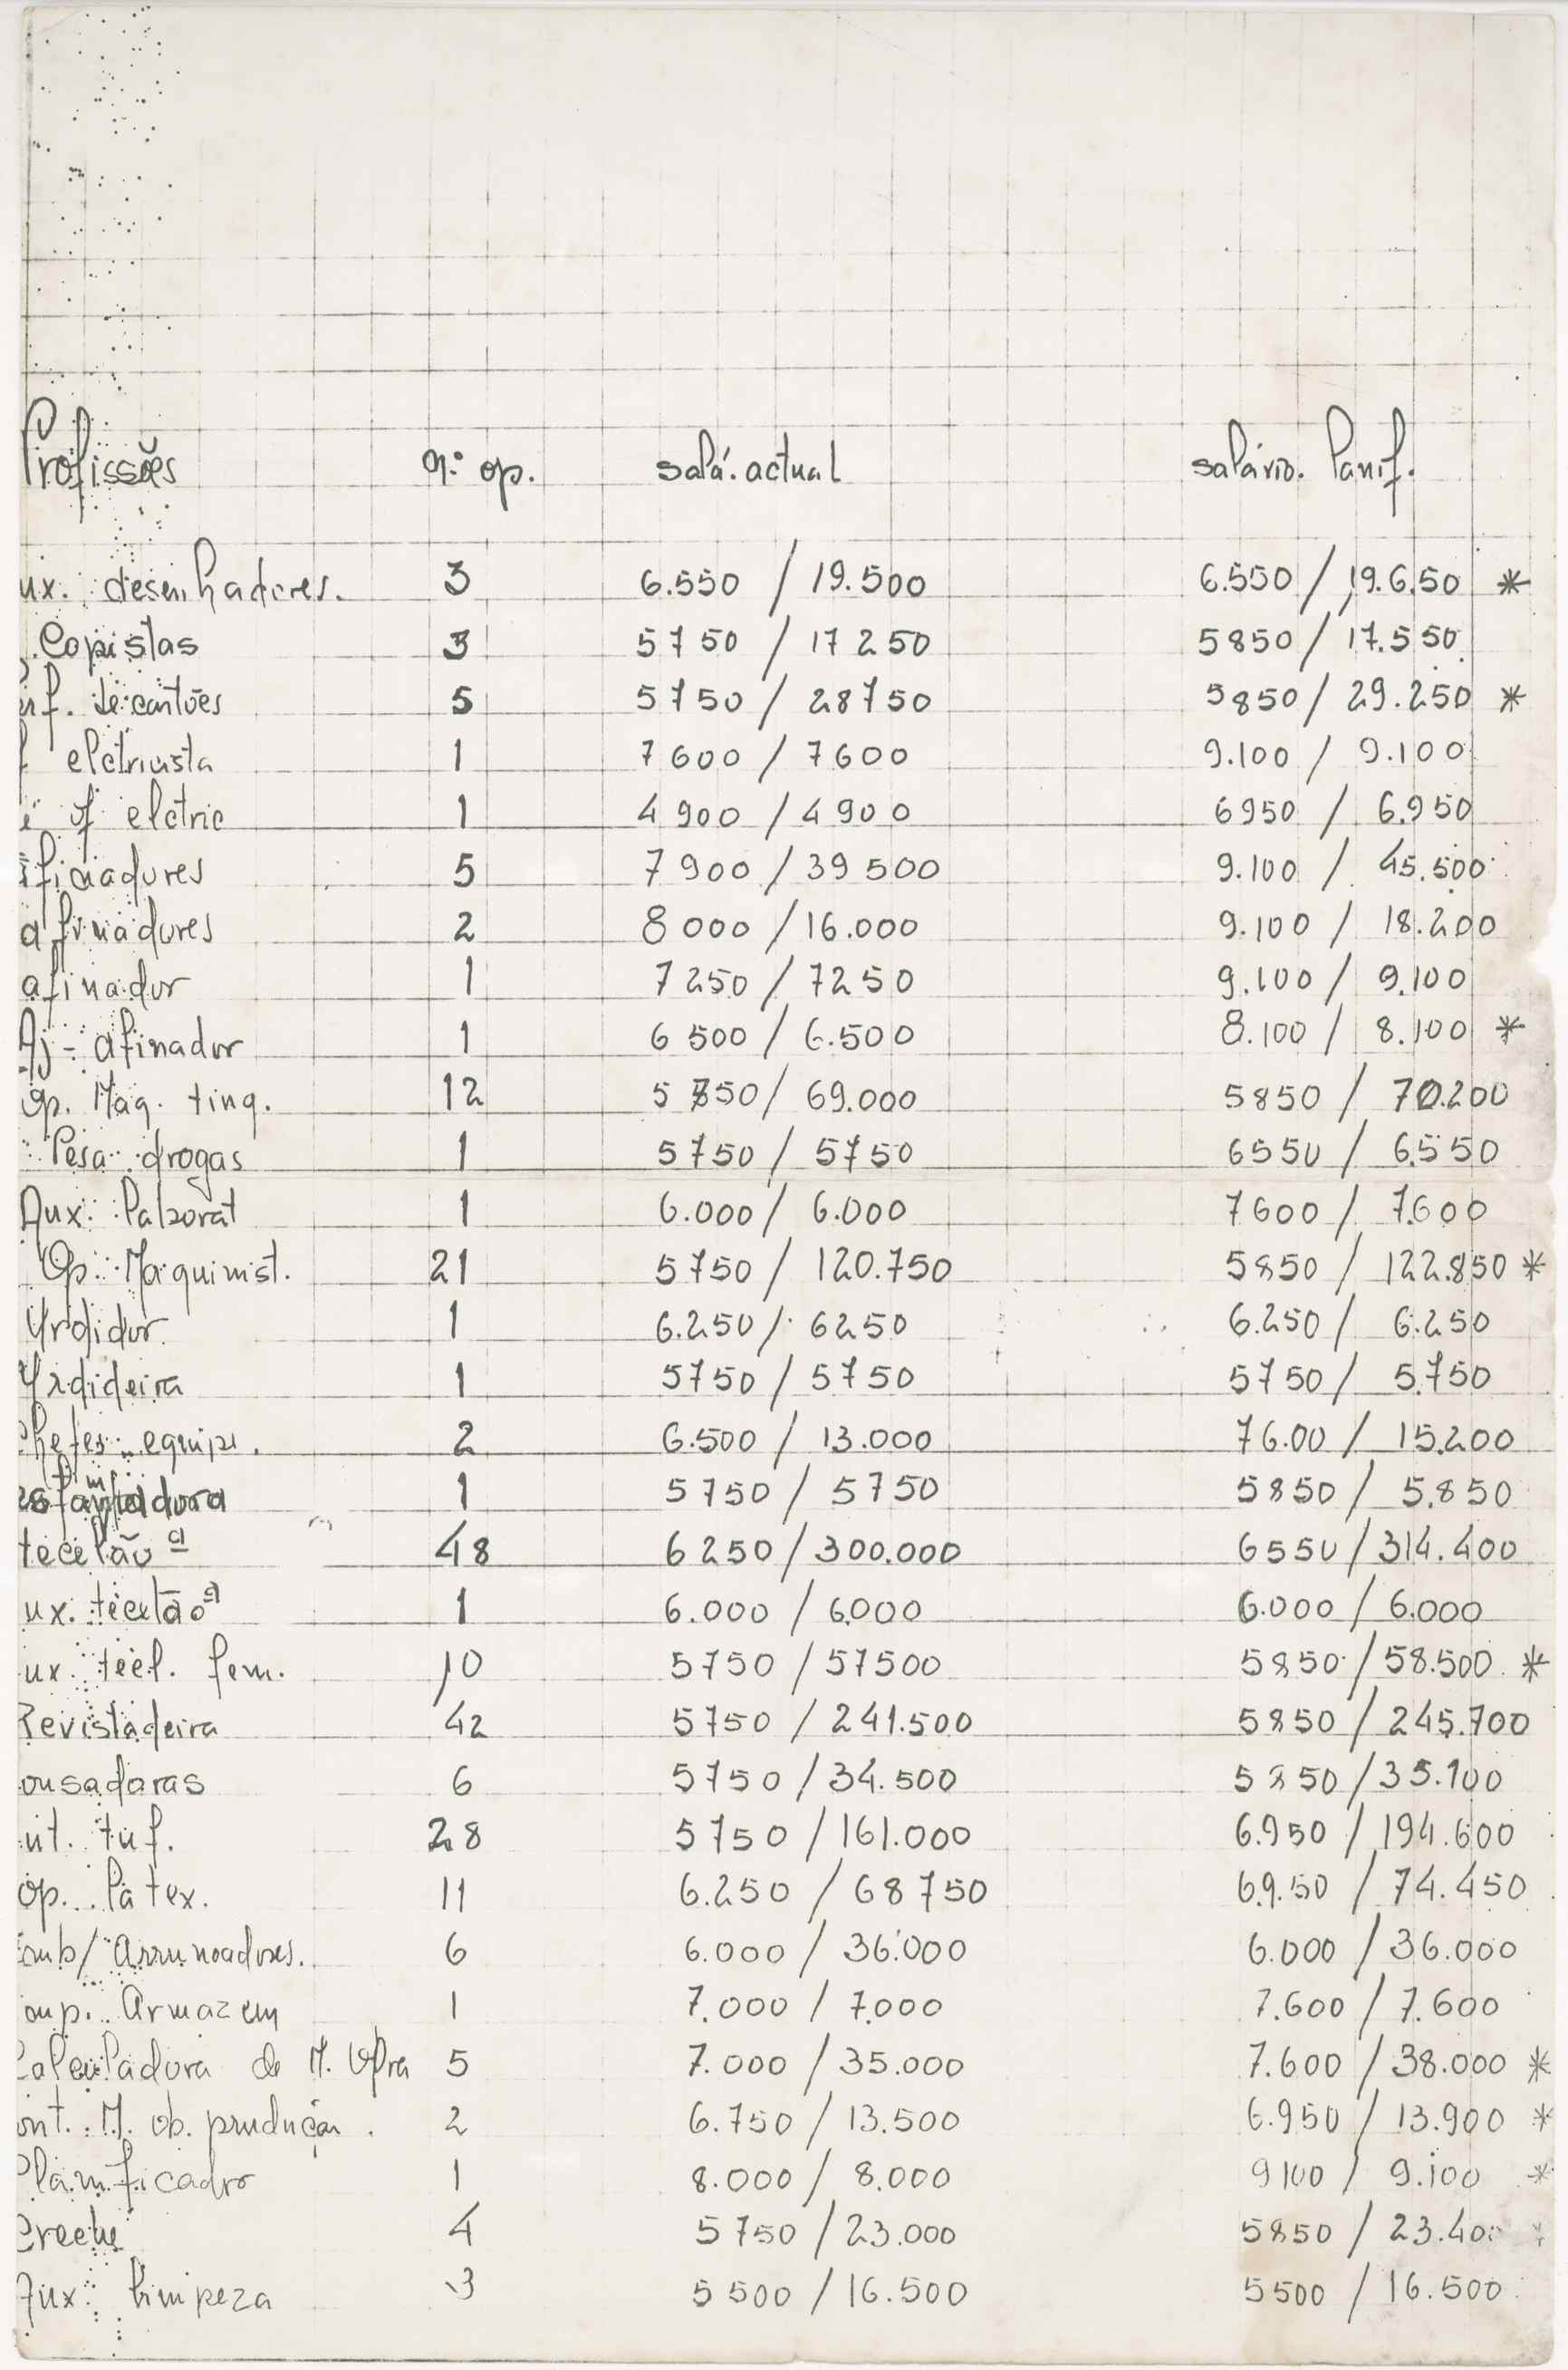 Profissões n.º op. salá. actual salário. Panif.
ux. desenhadores. 3 6.550 / 19.500 6.550 / 19.6.50 *
Copistas 3 5750 / 17 250 5850 / 17.550
rf. de cartões 5 5750 / 28750 5850 / 29.250 *
elctricista 1 7600 / 7600 9.100 / 9.100
of elctric 1 4 900 / 4 900 6950 / 6.950
ficiadores 5 7 900 / 39 500 9.100 / 45.500
afinadores 2 8 000 / 16.000 9.100 / 18.200
afinador 1 7 250 / 7250 9.100 / 9.100
Aj - afinador 1 6 500 / 6.500 8.100 / 8.100 *
Op. Maq. ting. 12 5 750 / 69.000 5850 / 70.200
Pesa drogas 1 5750 / 5750 6550 / 6.550
Aux. 1 6.000 / 6.000 7600 / 7.600
Op. Maquinist. 21 5750 / 120.750 5850 / 122.850 *
Urdidor 1 6.250 / 6250 6.250 / 6.250
Urdideira 1 5750 / 5750 5750 / 5.750
Chefes equipe. 2 6.500 / 13.000 76.00 / 15.200
1 5750 / 5750 5850 / 5.850
tecelão ª 48 6 250 / 300.000 6550 / 314.400
ux. tecelão ª 1 6.000 / 6.000 6.000 / 6.000
ux. tecel. fem. 10 5750 / 57500 5850 / 58.500 *
Revistadeira 42 5750 / 241.500 5850 / 245.700
ousadaras 6 5750 / 34.500 5850 / 35.100
nt. tuf. 28 5750 / 161.000 6.950 / 194.600
op. Latex. 11 6.250 / 68750 6.9.50 / 74.450
Emb/ Arrumadores. 6 6.000 / 36.000 6.000 / 36.000
omp. Armazem 1 7.000 / 7.000 7.600 / 7.600
Calculadora de M. Obra 5 7.000 / 35.000 7.600 / 38.000 *
ont. M. ob. produção. 2 6.750 / 13.500 6.950 / 13.900 *
Planificador 1 8.000 / 8.000 9100 / 9.100 *
Creche 4 5750 / 23.000 5850 / 23.400 *
Aux. limpeza 3 5 500 / 16.500 5500 / 16.500